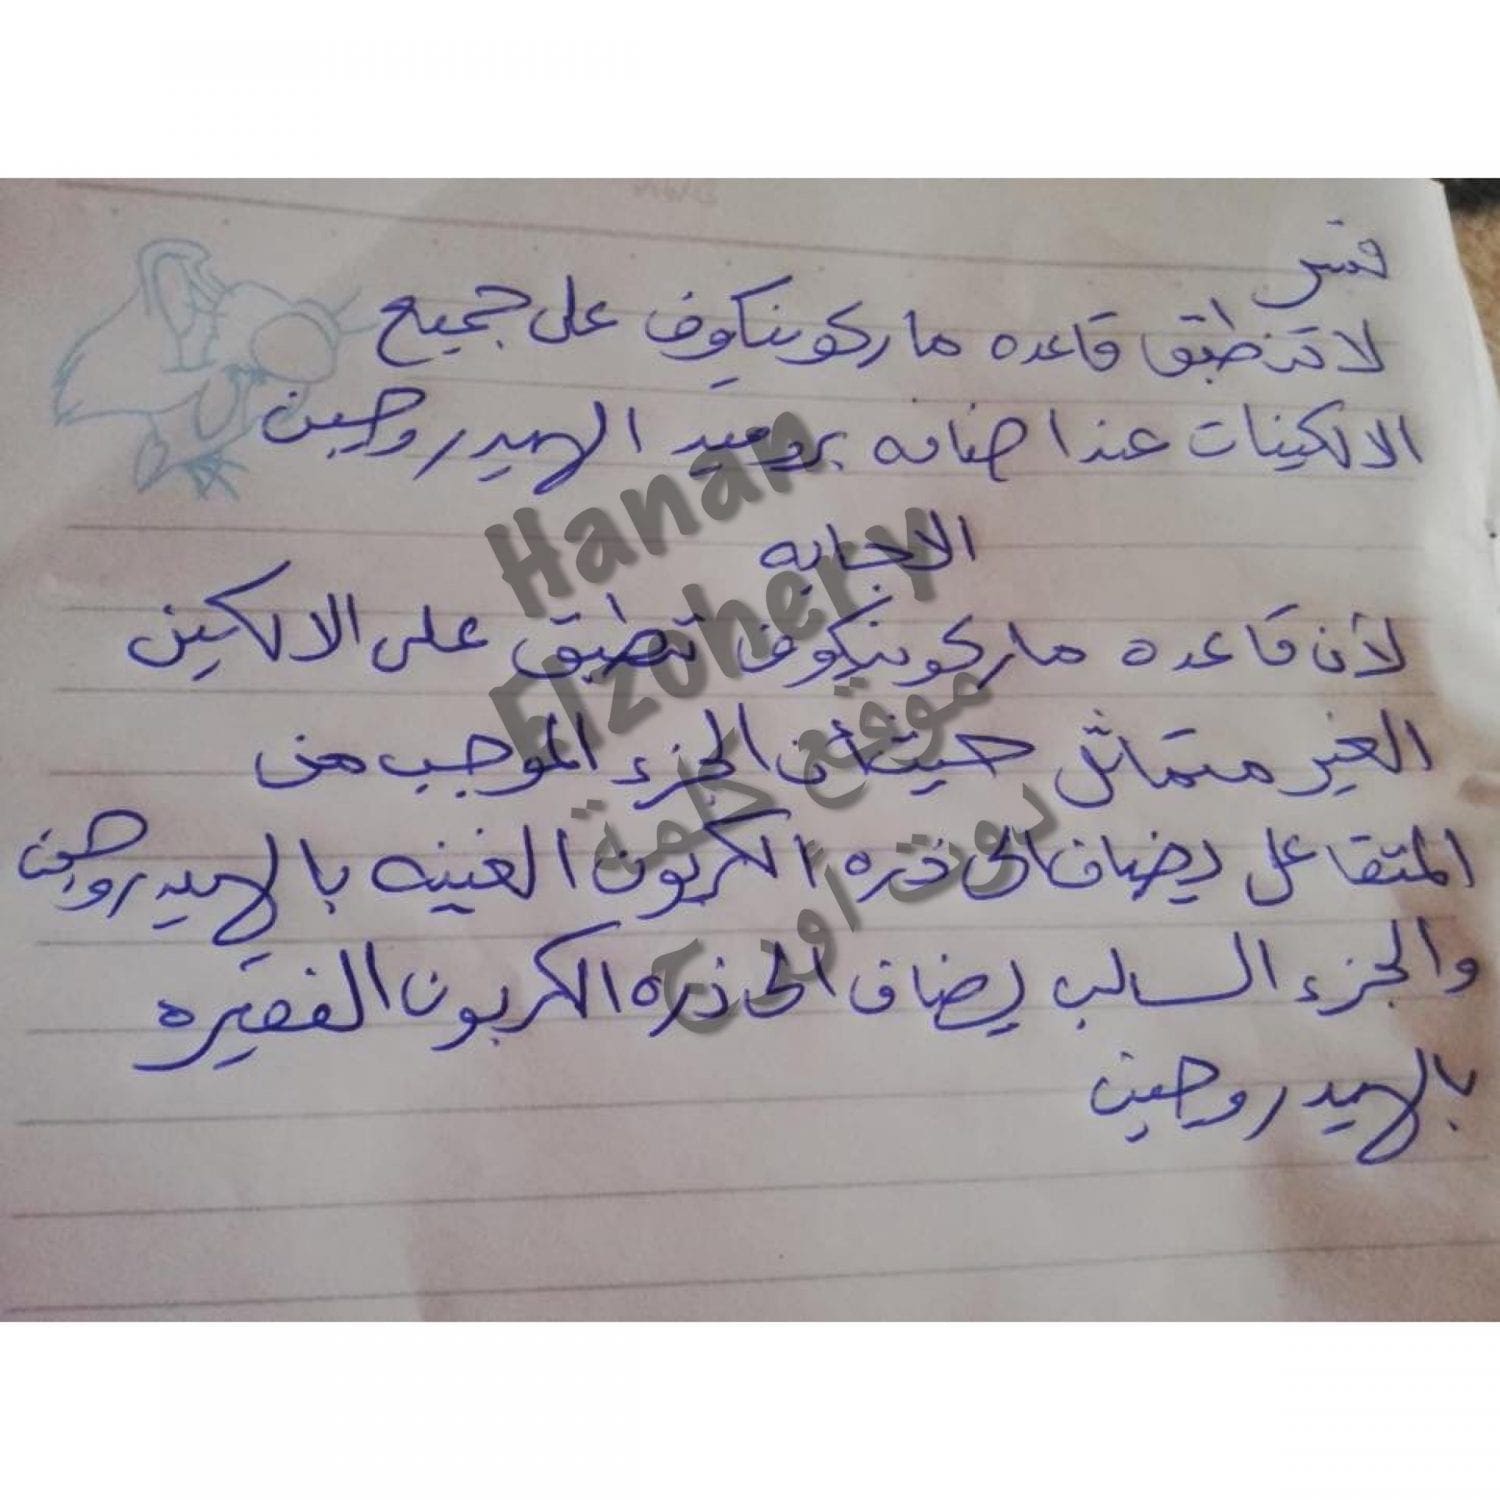 فسر
لا تنطبق قاعده ماركوينكوف على جميع
الالكينات عند اضافه بروميد الهيدروجين
الاجابه
لأن قاعده ماركوينكوف تطبق على الالكين
الغير متماثل حيث ان الجزء الموجب من
المتفاعل يضاف الى ذره الكربون الغنيه بالهيدروجين
والجزء السالب يضاف الى ذره الكربون الفقيره
بالهيدروجين
Hanan
Elzohery
موقع كلمة
دوت أورج